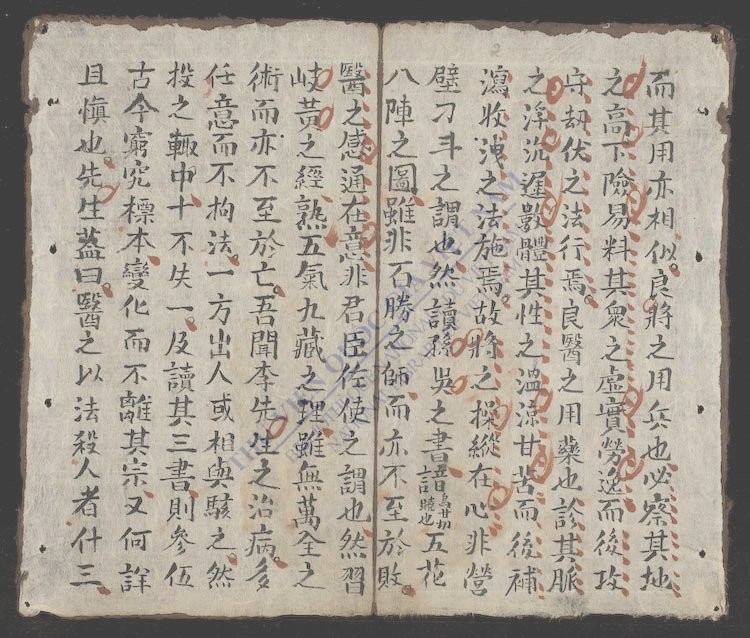 而其用亦相似。良將之用兵也必察其地
之高下險易料其衆之虛實勞逸而後攻
守刼伏之法行焉。良醫之用藥也診其脈
之浮沉遲數體其性之溫凉甘苦而後補
瀉收洩之法施焉。故將之操縱在心非營
壁刁斗之謂也然讀孫吳之書諳烏甘切曉也五花
八陣之圖雖非百勝之師而亦不至於敗。
醫之感通在意非君臣佐使之謂也然習
岐黃之經熟五氣九藏之理雖無萬全之
術而亦不至於亡。吾聞李先生之治病。多
任意而不拘法。一方出人或相與駭之。然
投之輒中十不失一。及讀其三書則參伍
古今窮究標本變化而不離其宗又何詳
且愼也。先生蓋曰。醫之以法殺人者什三
THƯ VIỆN QUỐC GIA VIỆT NAM